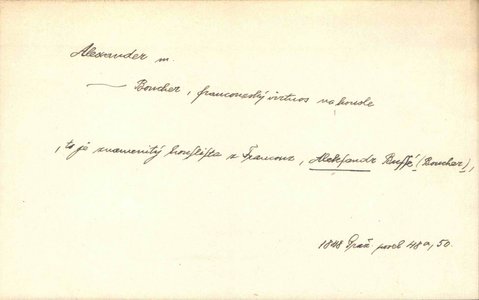 Alexander m.
— Boucher, francouský virtuos na housle
, to je znamenitý houslista z Francouz, Aleksandr (Boucher),
1848 Praž. posel 48a, 50.